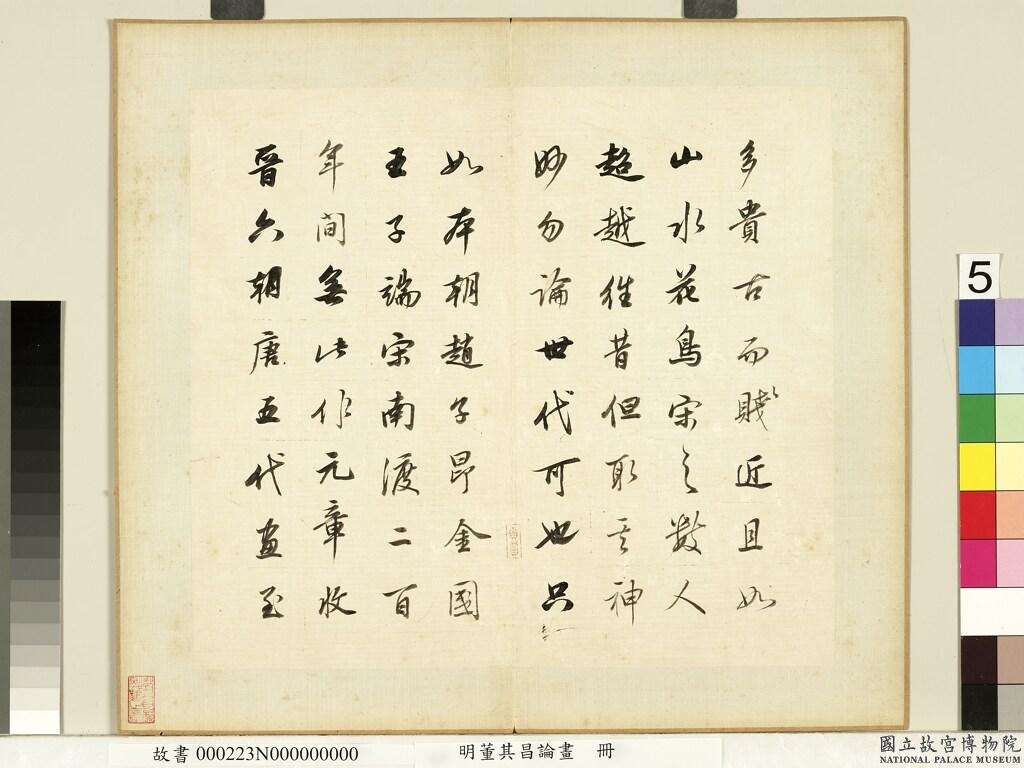 多貴古而賤近且如
山水花鳥宋之數人
超越往昔但取其神
妙勿論世代可也只
如本朝趙子昂金國
王子端宋南渡二百
年間無此作元章收
晉六朝唐五代畫至
5
故書 000223N000000000
明董其昌論畫 冊
國立故宮博物院
NATIONAL PALACE MUSEUM